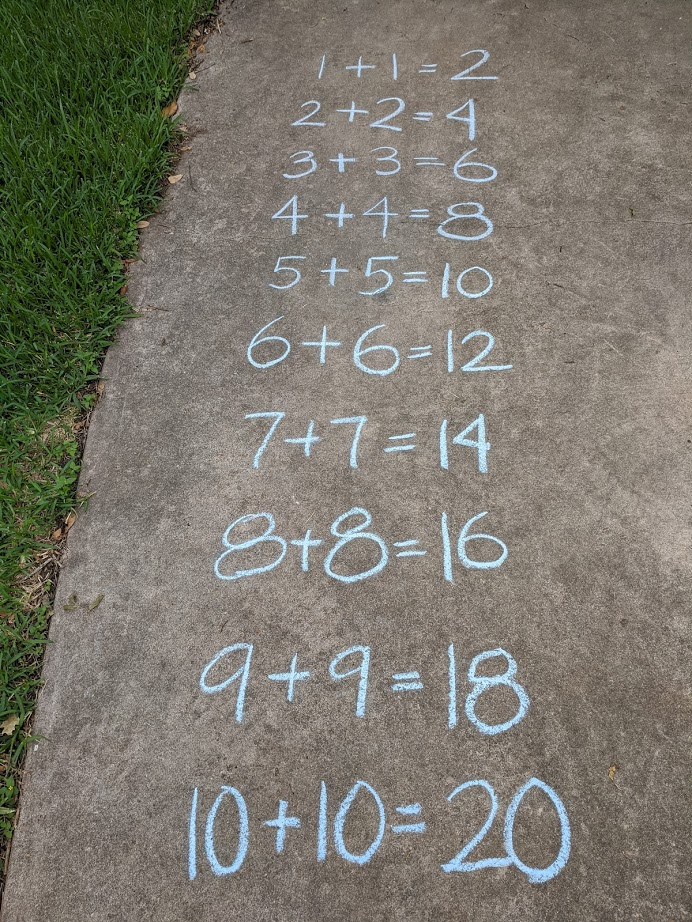 1+1=2
2+2=4
3+3=6
4+4=8
5+5=10
6+6=12
7+7=14
8+8=16
9+9=18
10+10=20